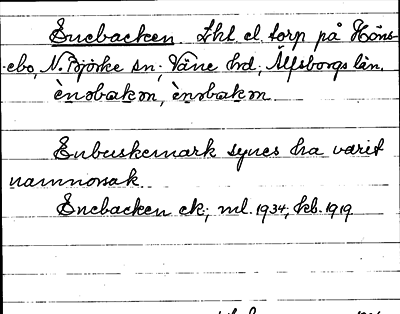 Enebacken. Lht el. torp på Höns-
ebo, N. Björke sn; Väne hd; Älfsborgs län.
ènəbakən, ènəbakən
Enbuskemark synes ha varit
namnorsak
Enebacken ek; ml. 1934; kb. 1919